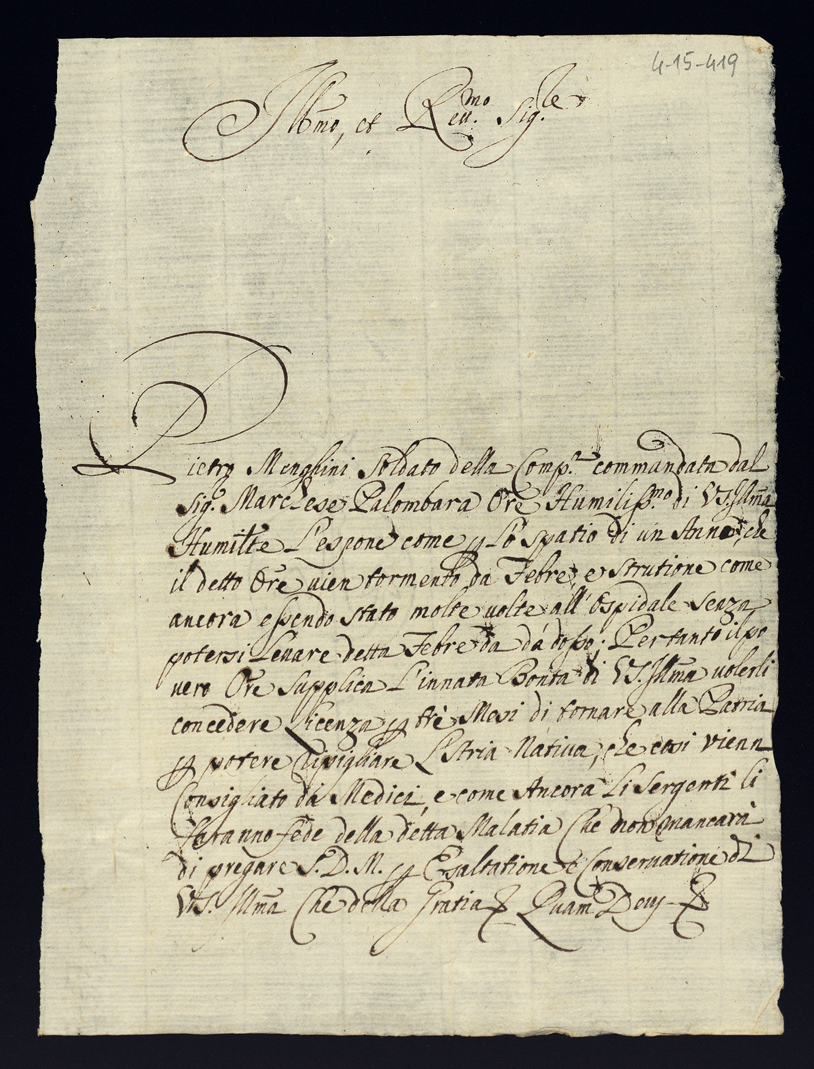 4-15-419
Ill̃mo, et Reu.mo Sig.le
Pietro Menghini Soldato della Comp.a commandata dal
Sig.r Marchese Palombara Ore Humiliss.mo di VS. Illm̃a
Humilte L'espone come p Lo spatio di un Anno che
il detto Ore uien tormento da Febre, e strutione come
ancora essendo stato molte uolte all'Ospidale senza
potersi Leuare detta Febre da dosso; Per tanto il po
uero Ore supplica L'innata Bontà di VS. Illm̃a uolerli
concedere Licenza p trè Mesi di tornare alla Patria
p potere ripigliare L'stria Natiua, che cosi vienn
Consigliato da Medici, e come Ancora Li Sergenti li
faranno fede della detta Malatia Che non mancarà
di pregare S.D.M. p Esaltatione e Conseruatione di
VS. Illm̃a Che della Gratia Quam Deus